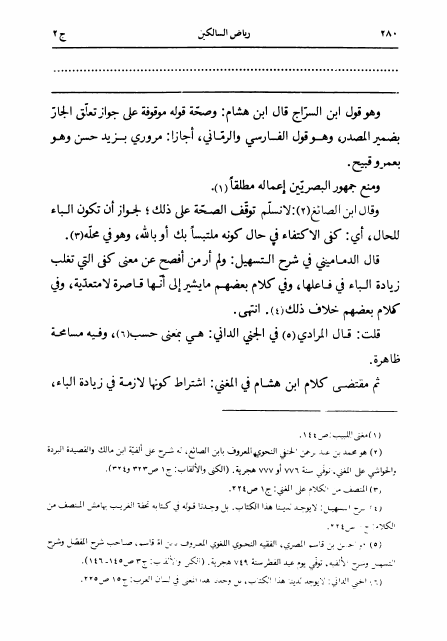 ٢٨٠ رياض السالكين ج٢
وهو قول ابن السرّاج قال ابن هشام: وصحّة قوله موقوفة على جواز تعلّق الجارّ
بضمير المصدر، وهو قول الفارسي والرمّاني، أجازا: مروري بزيد حسن وهو
بعمرو قبيح.
ومنع جمهور البصريّين إعماله مطلقاً (١).
وقال ابن الصائغ(٢): لا نسلّم توقّف الصحّة على ذلك؛ لجواز أن تكون الباء
للحال، أي: كفى الاكتفاء في حال كونه ملتبساً بك أو بالله، وهو في محلّه(٣).
قال الدماميني في شرح التسهيل: ولم أر من أفصح عن معنى كفى التي تغلب
زيادة الباء في فاعلها، وفي كلام بعضهم ما يشير إلى أنّها قاصرة لا متعدّية، وفي
كلام بعضهم خلاف ذلك(٤). انتهى.
قلت: قال المرادي(٥) في الجني الداني: هي بمعنى حسب(٦)، وفيه مسامحة
ظاهرة.
ثم مقتضى كلام ابن هشام في المغني: اشتراط كونها لازمة في زيادة الباء،
(١) مغنى اللبيب: ص ١٤٤.
(٢) هو محمد بن عبد الرحمن الحنفي النحوي المعروف بابن الصائغ، له شرح على ألفيّة ابن مالك والقصيدة البردة
والحواشي على المغني، توفّي سنة ٧٧٦ أو ٧٧٧ هجرية. (الكنى والألقاب: ج١ ص٣٢٣ و٣٢٤).
(٣) المنصف من الكلام على المغني: ج١ ص٢٢٤.
(٤) شرح التسهيل: لا يوجد لدينا هذا الكتاب. بل وجدنا قوله في كتابه تحفة الغريب بهامش المنصف من
الكلام: ج١ ص٢٢٤.
(٥) هو الحسن بن قاسم المصري، الفقيه النحوي اللغوي المعروف بابن اُمّ قاسم، صاحب شرح المفصّل وشرح
التسهيل وشرح الألفية، توفّي يوم عيد الفطر سنة ٧٤٩ هجرية. (الكنى والألقاب: ج٣ ص١٤٥-١٤٦).
(٦) الجني الداني: لا يوجد لدينا هذا الكتاب، بل وجدنا هذا المعنى في لسان العرب: ج١٥ ص٢٢٥.